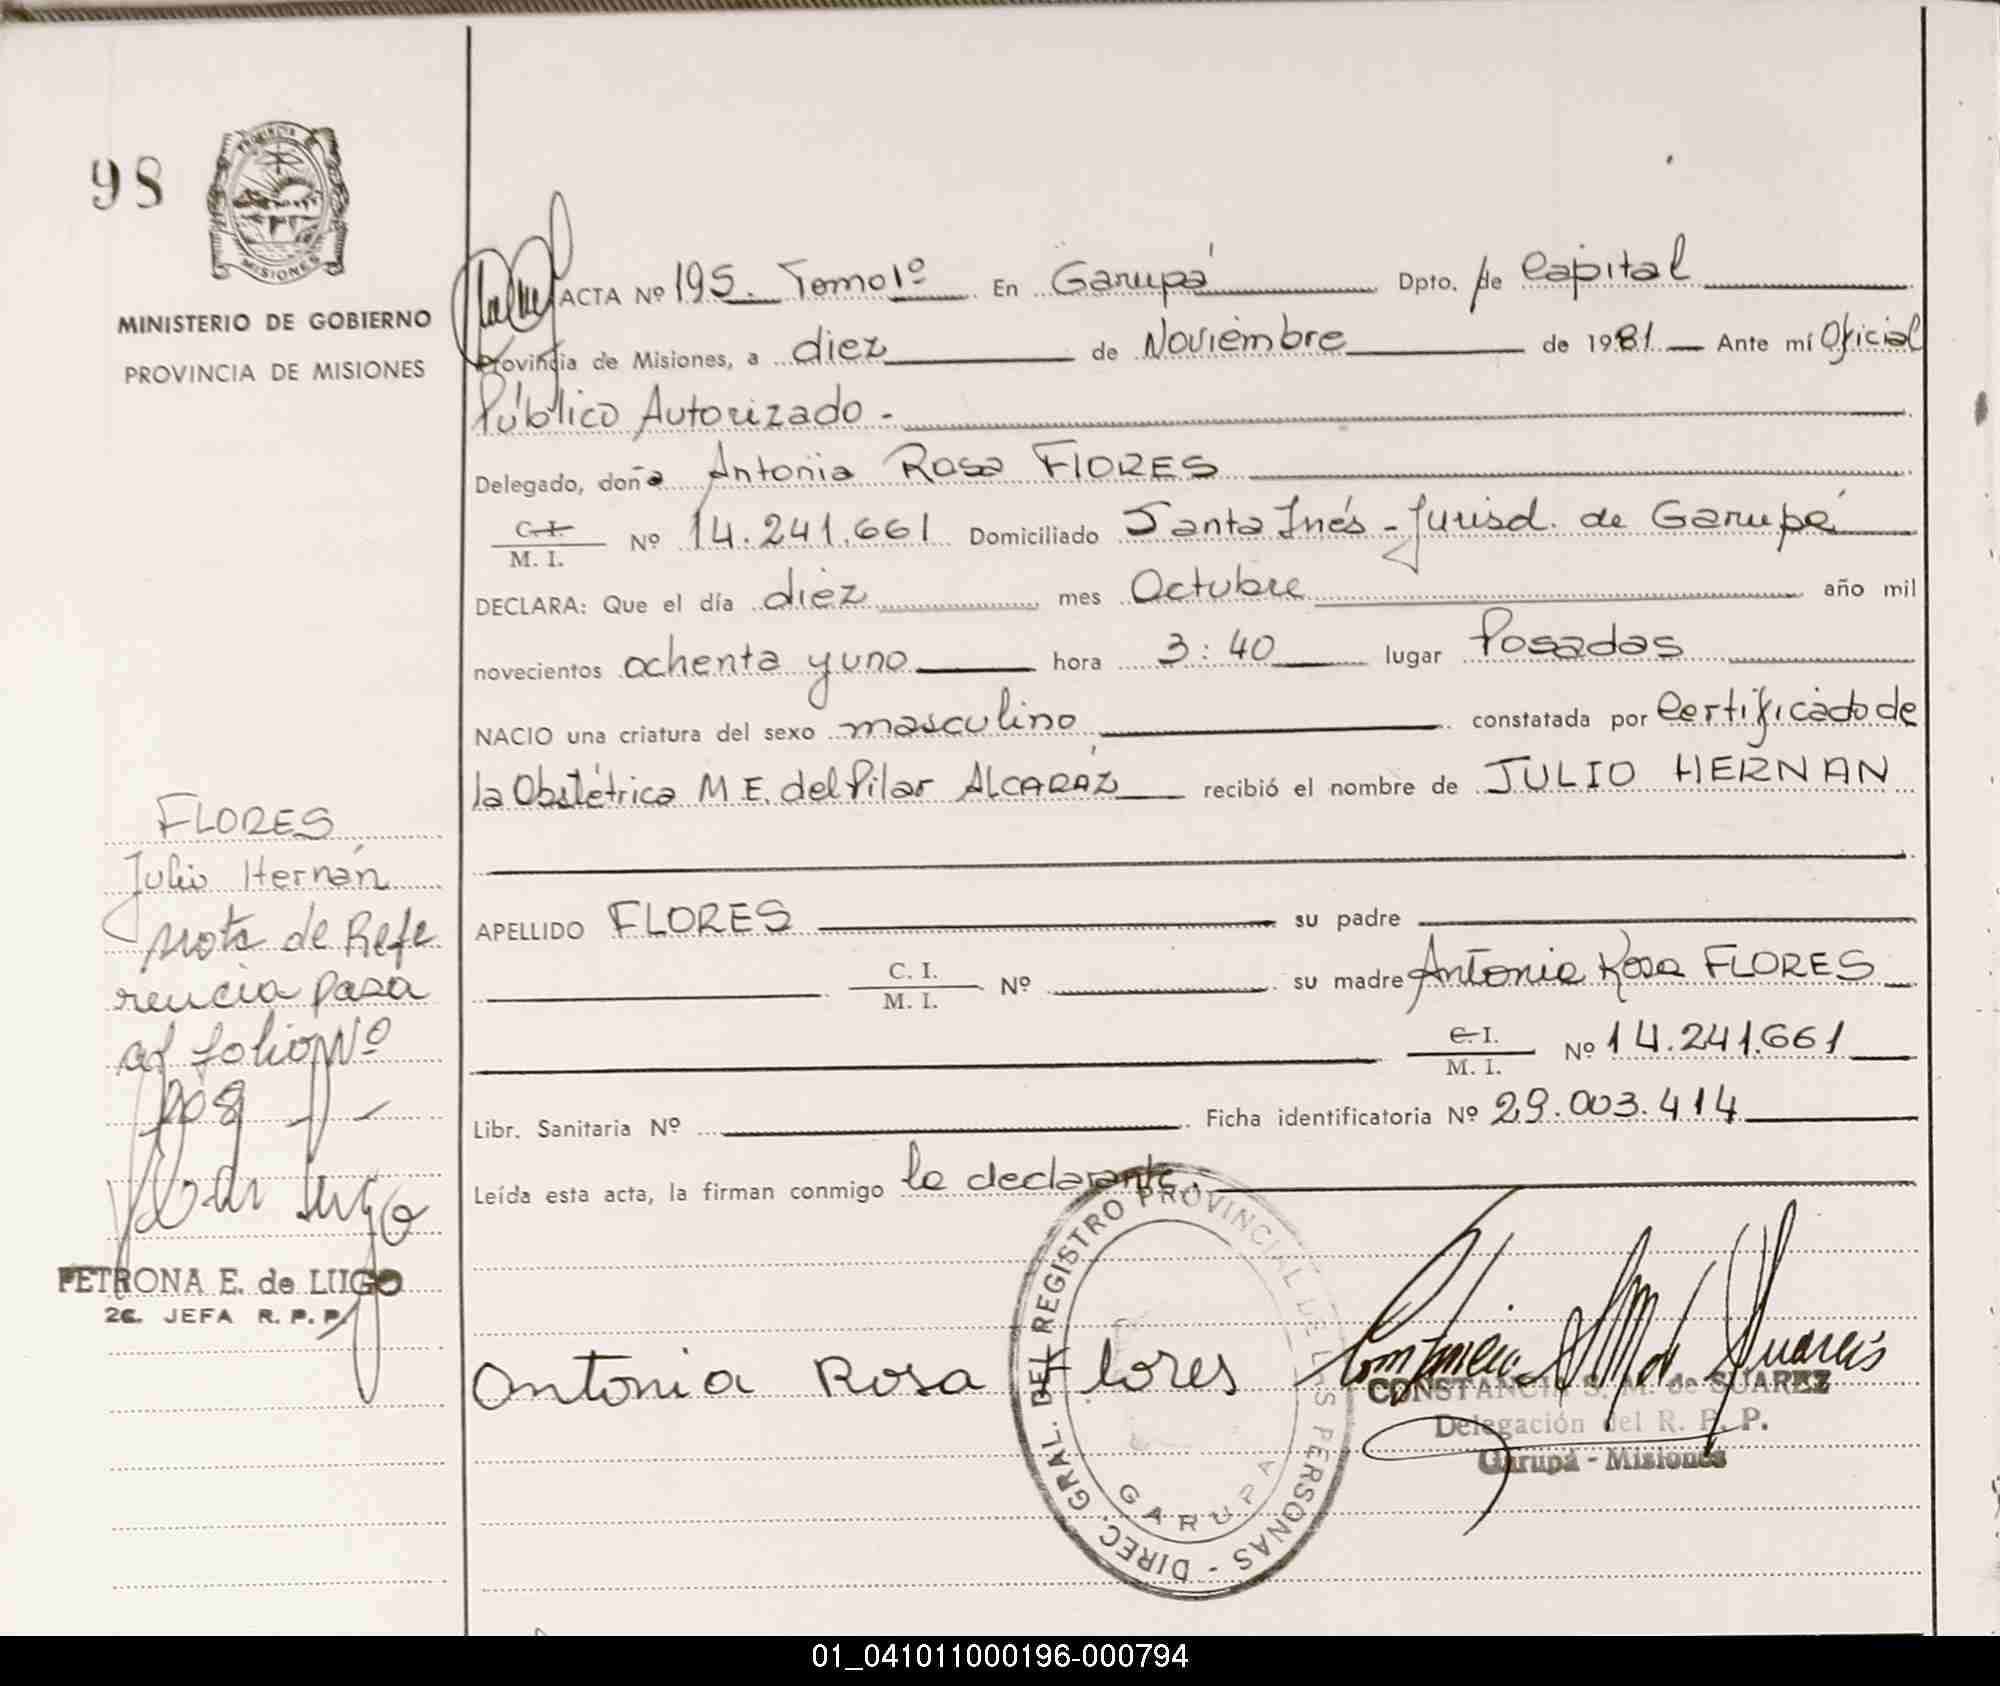 98
PROVINCIA
MISIONES
MINISTERIO DE GOBIERNO
PROVINCIA DE MISIONES
ACTA Nº 195. Tomo 1º En Garupá Dpto. de Capital
Provincia de Misiones, a diez de Noviembre de 1981 Ante mí Oficial
Público Autorizado -
Delegado, doña Antonia Rosa FLORES
C.I. / M. I. Nº 14.241.661 Domiciliado Santa Inés - Jurisd. de Garupá
DECLARA: Que el día diez mes Octubre año mil
novecientos ochenta y uno hora 3:40 lugar Posadas
NACIO una criatura del sexo masculino constatada por Certificado de
la Obstétrica M E. del Pilar ALCARÁZ recibió el nombre de JULIO HERNAN
APELLIDO FLORES su padre
C. I. / M. I. Nº su madre Antonia Rosa FLORES
C.I. / M. I. Nº 14.241.661
Libr. Sanitaria Nº Ficha identificatoria Nº 29.003.414
Leída esta acta, la firman conmigo la declarante.
FLORES
Julio Hernán
Nota de Refe
rencia pasa
al folio Nº
208
PETRONA E. de LUGO
2a. JEFA R. P. P.
Antonia Rosa Flores
DIREC. GRAL. DEL REGISTRO PROVINCIAL DE LAS PERSONAS - GARUPA
CONSTANCIA S. M. de SUAREZ
Delegación del R. P. P.
Garupá - Misiones
01_041011000196-000794